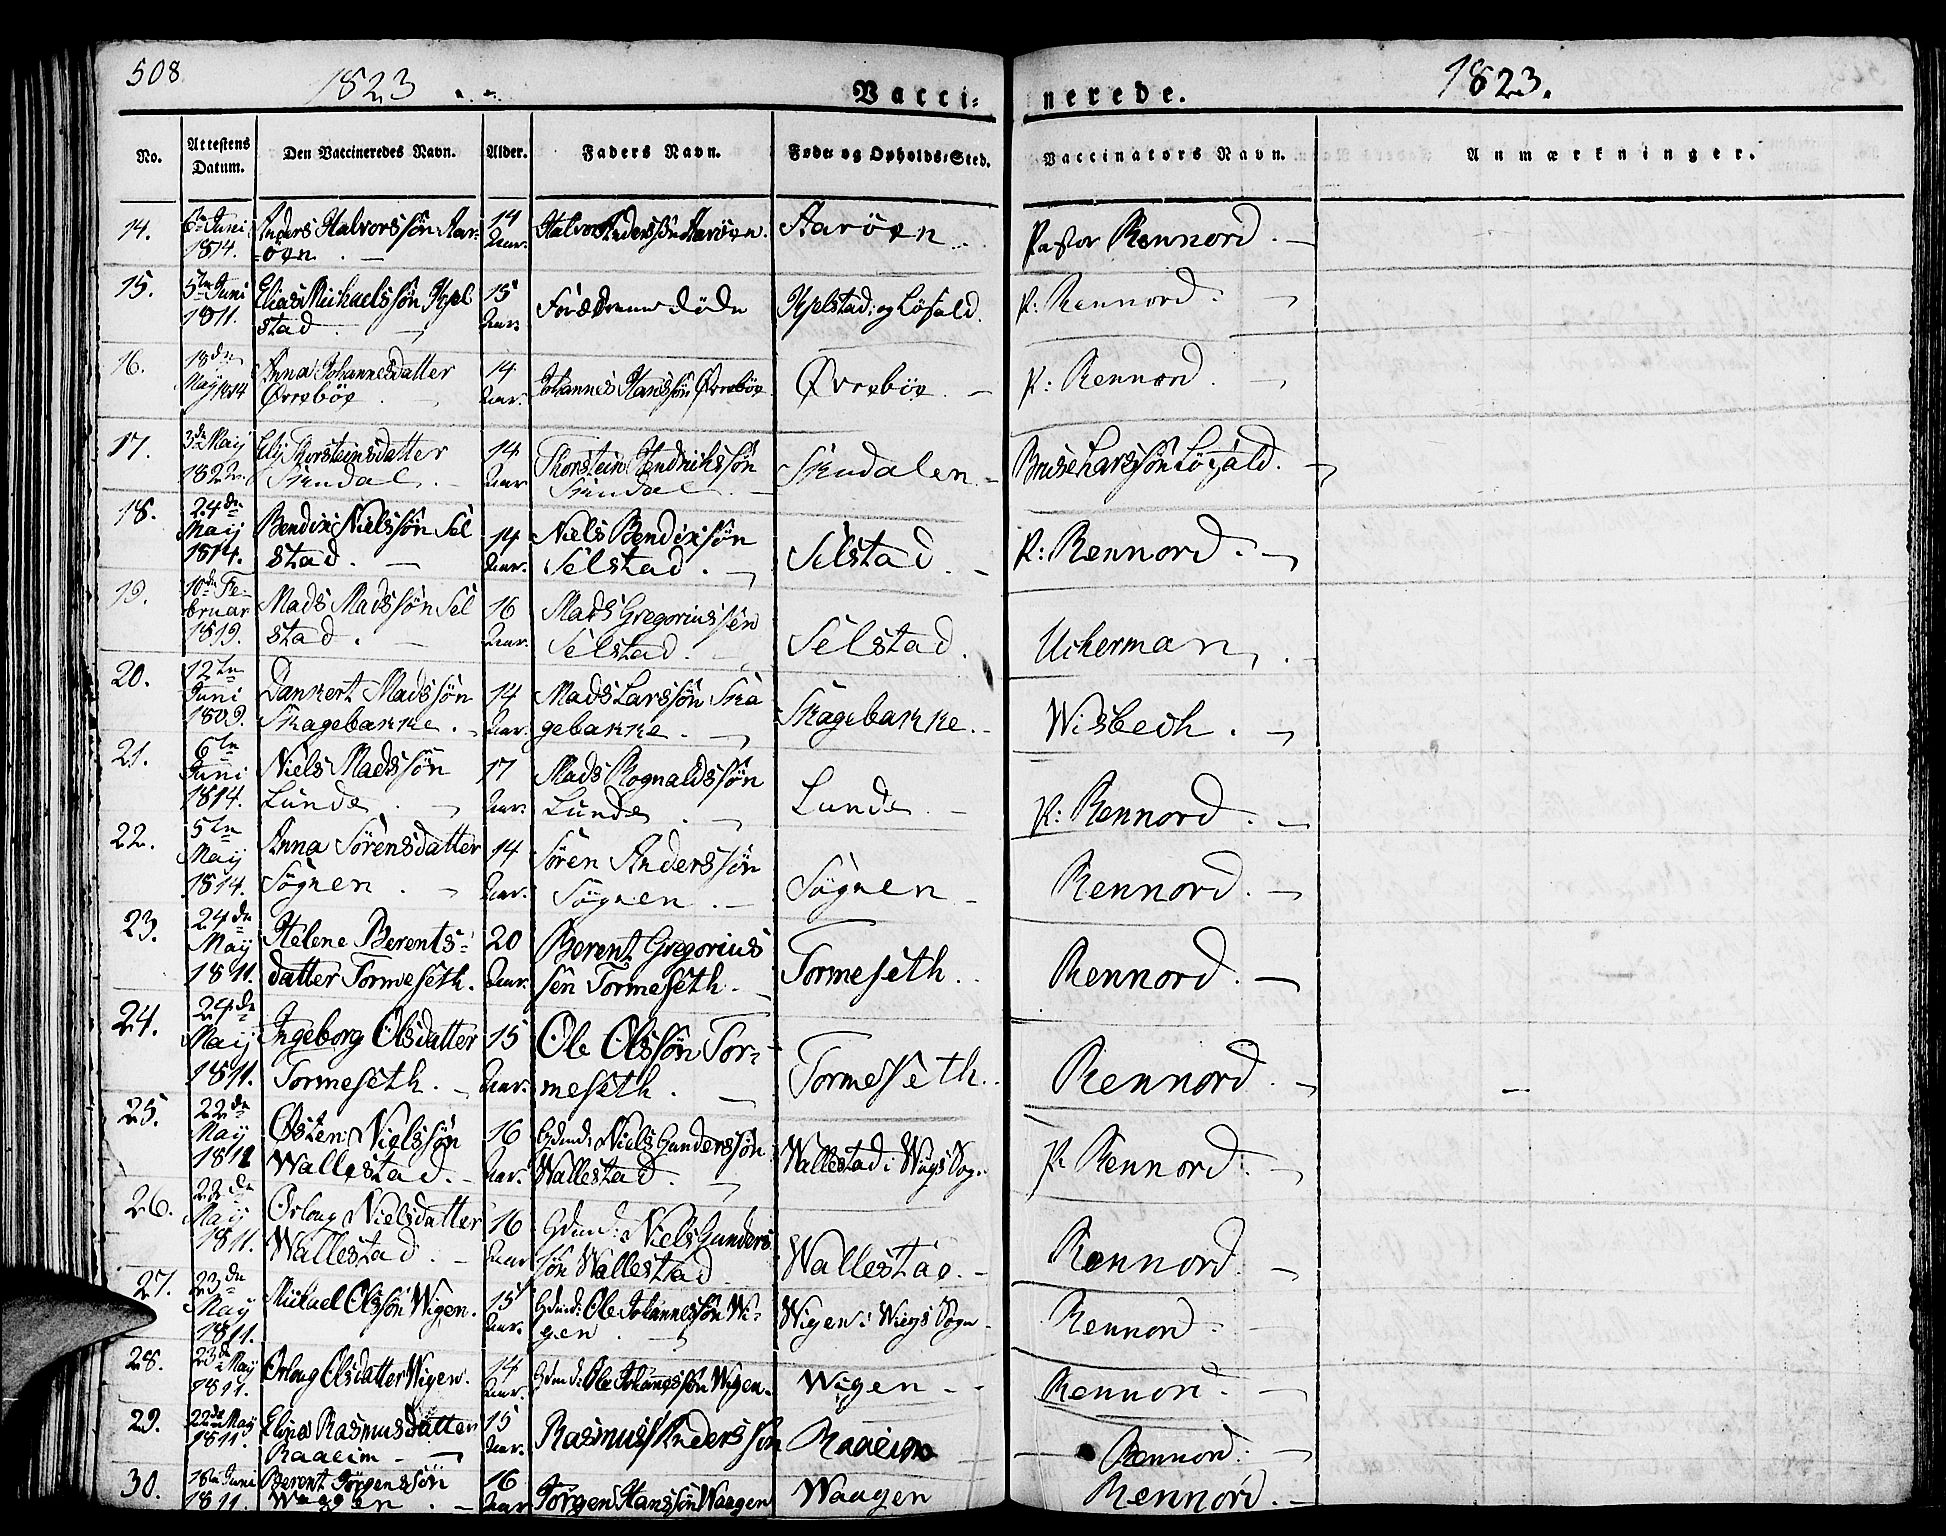 508
1823
Vacci-
nerede.
1823.
No.
Attestens Datum.
Den Vaccineredes Navn.
Alder.
Faders Navn.
Føde og Opholds-Sted.
Vaccinators Navn.
Anmærkninger.
14. 6te Juni 1814. Anders Halvorssön Aar-öen. 14 Aar. Halvor Anderssön Aaröen. Aaröen. Pastor Rennord.
15. 5te Juni 1811. Elias Michaelssön stad 15 Aar Foreldrene døde og Löfald. P: Rennord.
16. 18de Maÿ 1814 Anna Johannesdatter Øvreböe 14 Aar. Johannes Hanssön Øvreböe. Øvreböe. P: Rennord.
17. 3de Maij 1822. Thorsteinsdatter 14 Aar Thorstein Hendrikssön P: Larssön
18. 24de Maij 1814. Bendix Nielssön Sel stad. 14 Aar. Niels Bendixsön Selstad. Selstad. P: Rennord.
19. 10de Fe-bruar 1819. Mads Madssön Sel stad. 16 Aar. Mads Gregoriussön Selstad. Selstad. Uckerman.
20. 12te Juni 1809. Dankert Madssön Skagebakke. 14 Aar. Mads Larssön Ska gebakke. Skagebakke. Wisbech.
21. 6te Juni 1814. Niels Madssön Lunde. 17 Aar. Mads Rognaldssön Lunde. Lunde. P: Rennord.
22. 5te Maÿ 1814. Anna Sörensdatter Sögnen. 14 Aar. Sören Anderssön Sögnen. Sögnen. Rennord.
23. 24de Maÿ 1811. Helene Berents- datter Tormeseth. 20 Aar. Berent Gregorius sön Tormeseth. Tormeseth. Rennord.
24. 24de Maij 1811. Ingeborg Olsdatter Tormeseth. 15 Aar. Ole Olssön Tor- meseth. Tormeseth. Rennord.
25. 22de Maÿ 1811 Østen Nielssön Wallestad. 16 Aar. Gdmd: Niels Gunderssön Wallestad. Wallestad i Sogn. P. Rennord.
26. 22de Maÿ 1811. Orloug Nielsdatter Wallestad. 16 Aar Gdmd: Niels Gunders sön Wallestad Wallestad. Rennord.
27. 23de Maÿ 1811. Mickael Olssön Wigen. 15 Aar. Gdmd: Ole Johannessön Wi- gen. Wigen i Sogn. Rennord.
28. 23de Maÿ 1811. Orloug Olsdatter Wigen. 14 Aar. Gdmd: Ole Johannessön Wigen. Wigen. Rennord.
29. 22de Maÿ 1811. Rasmusdatter Raaeim. 15 Aar. Rasmus Anderssön Raaeim Rennord.
30. Juni 1811. Berent Jörgenssön Waagen. 16 Aar Jörgen Hanssön Waagen Waagen Rennord.